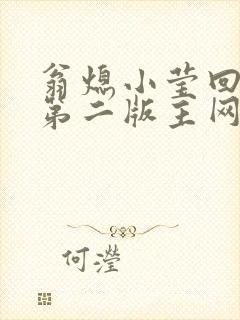 翁熄小莹回
第二版主网
何滢